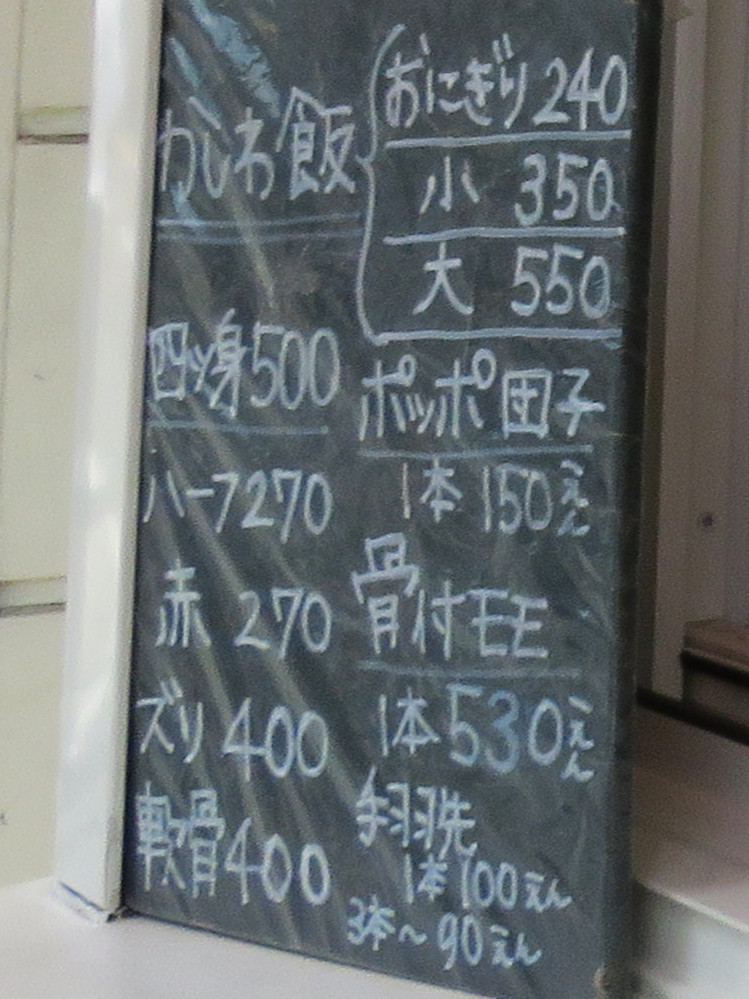 かしわ飯
おにぎり 240
小 350
大 550
四ッ身500
ハーフ270
赤 270
ズリ 400
軟骨400
ポッポ団子
1本 150えん
骨付モモ
1本 530えん
手羽先
1本 100えん
3本～90えん